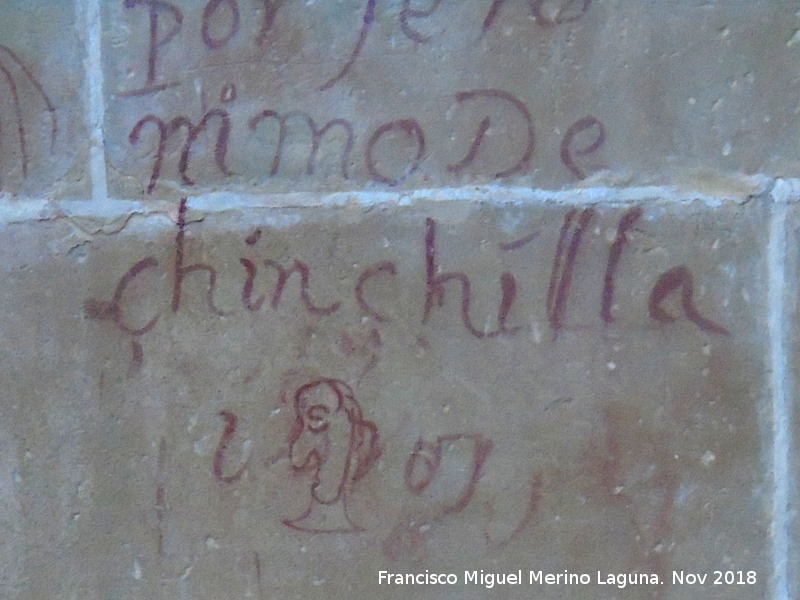 por Jero
nimo De
chinchilla
Francisco Miguel Merino Laguna. Nov 2018